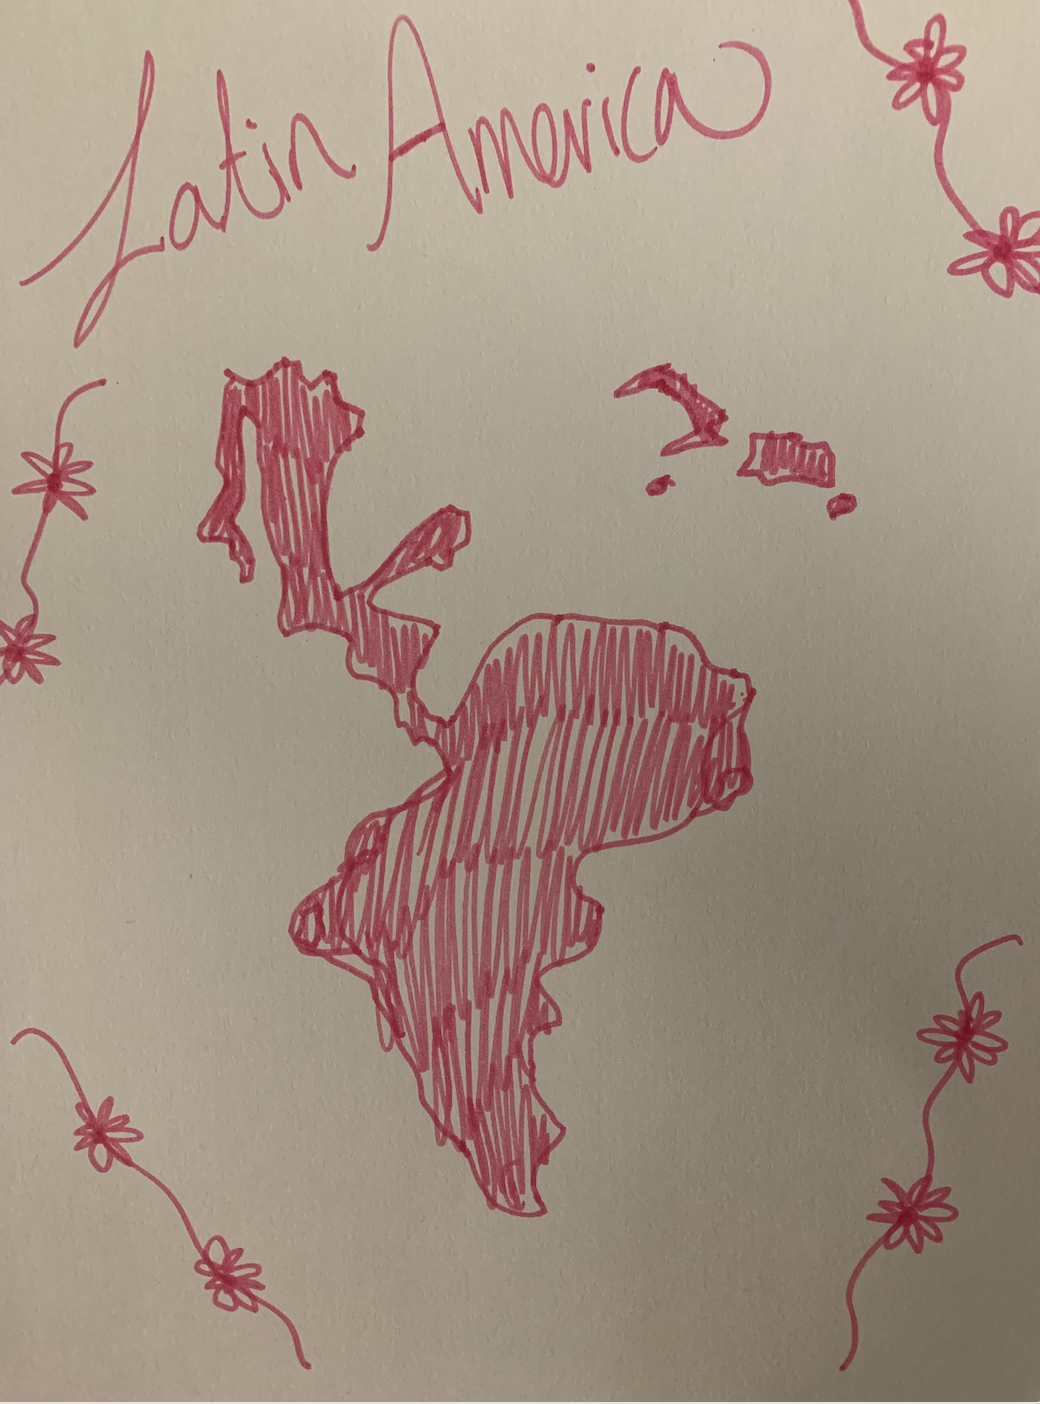 Latin America